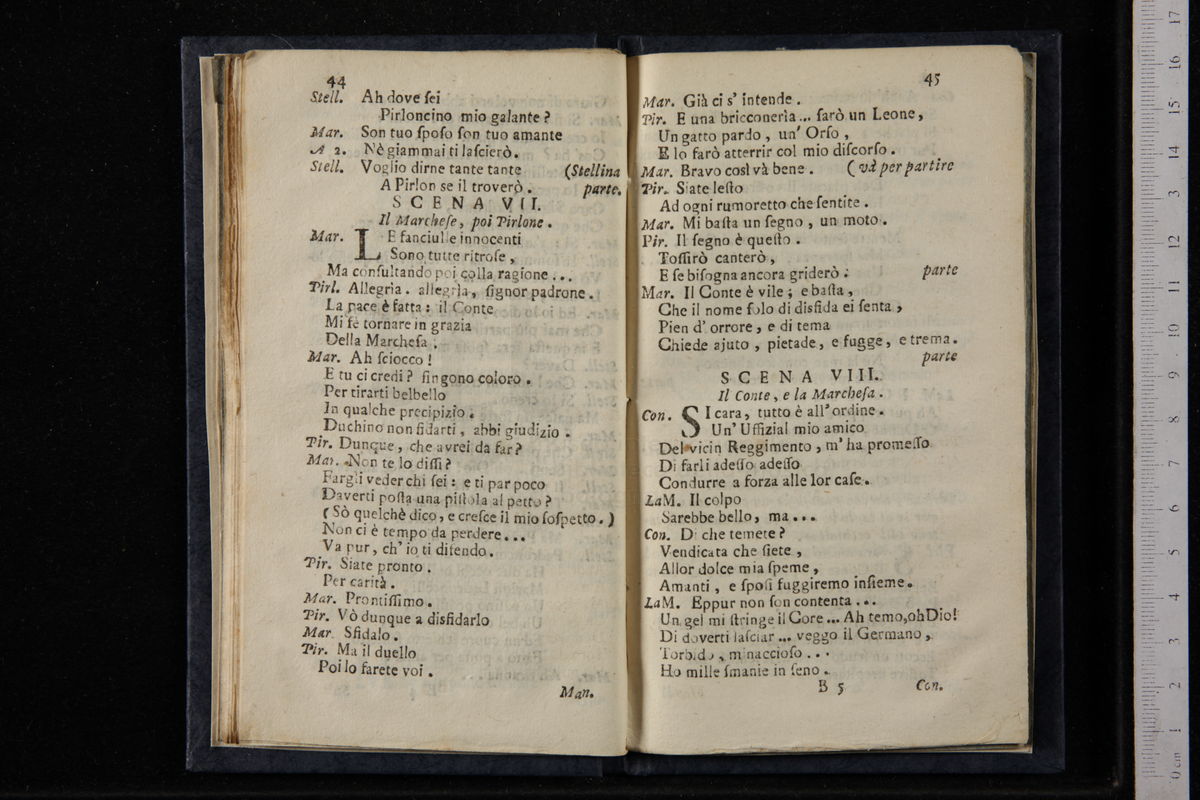 44
Stell. Ah dove ſei
Pirloncino mio galante?
Mar. Son tuo ſpoſo ſon tuo amante
A 2. Nè giammai ti laſcierò.
Stell. Voglio dirne tante tante (Stellina
A Pirlon se il troverò. parte.
SCENA VII.
Il Marcheſe, poi Pirlone.
Mar. LE fanciulle innocenti
Sono tutte ritroſe,
Ma conſultando poi colla ragione...
Pirl. Allegria. allegria, ſignor padrone.
La pace è fatta: il Conte
Mi fè tornare in grazia
Della Marcheſa.
Mar. Ah ſciocco!
E tu ci credi? fingono coloro.
Per tirarti belbello
In qualche precipizio.
Duchino non fidarti, abbi giudizio.
Pir. Dunque, che avrei da far?
Mar. Non te lo diſſi?
Fargli veder chi ſei: e ti par poco
Daverti poſta una piſtola al petto?
(Sò quelchè dico, e creſce il mio ſoſpetto.)
Non ci è tempo da perdere...
Va pur, ch' io ti difendo.
Pir. Siate pronto.
Per carità.
Mar. Prontiſſimo.
Pir. Vò dunque a disfidarlo
Mar. Sfidalo.
Pir. Ma il duello
Poi lo farete voi.
Man.
45
Mar. Già ci s' intende.
Pir. E una bricconeria... farò un Leone,
Un gatto pardo, un' Orſo,
E lo farò atterrir col mio diſcorſo.
Mar. Bravo così và bene. (và per partire
Pir. Siate leſto
Ad ogni rumoretto che ſentite.
Mar. Mi baſta un ſegno, un moto.
Pir. Il ſegno è queſto.
Toſſirò canterò,
E ſe biſogna ancora griderò: parte
Mar. Il Conte è vile; e baſta,
Che il nome ſolo di disfida ei ſenta,
Pien d' orrore, e di tema
Chiede ajuto, pietade, e fugge, e trema.
parte
SCENA VIII.
Il Conte, e la Marcheſa.
Con. SI cara, tutto è all' ordine.
Un' Uffizial mio amico
Del vicin Reggimento, m' ha promeſſo
Di farli adeſſo adeſſo
Condurre a forza alle lor caſe.
La M. Il colpo
Sarebbe bello, ma...
Con. Di che temete?
Vendicata che ſiete,
Allor dolce mia ſpeme,
Amanti, e ſpoſi fuggiremo inſieme.
La M. Eppur non ſon contenta...
Un gel mi ſtringe il Core... Ah temo, oh Dio!
Di doverti laſciar... veggo il Germano,
Torbido, minaccioſo...
Ho mille ſmanie in ſeno.
B 5 Con.
0 cm 1 2 3 4 5 6 7 8 9 10 11 12 13 14 15 16 17